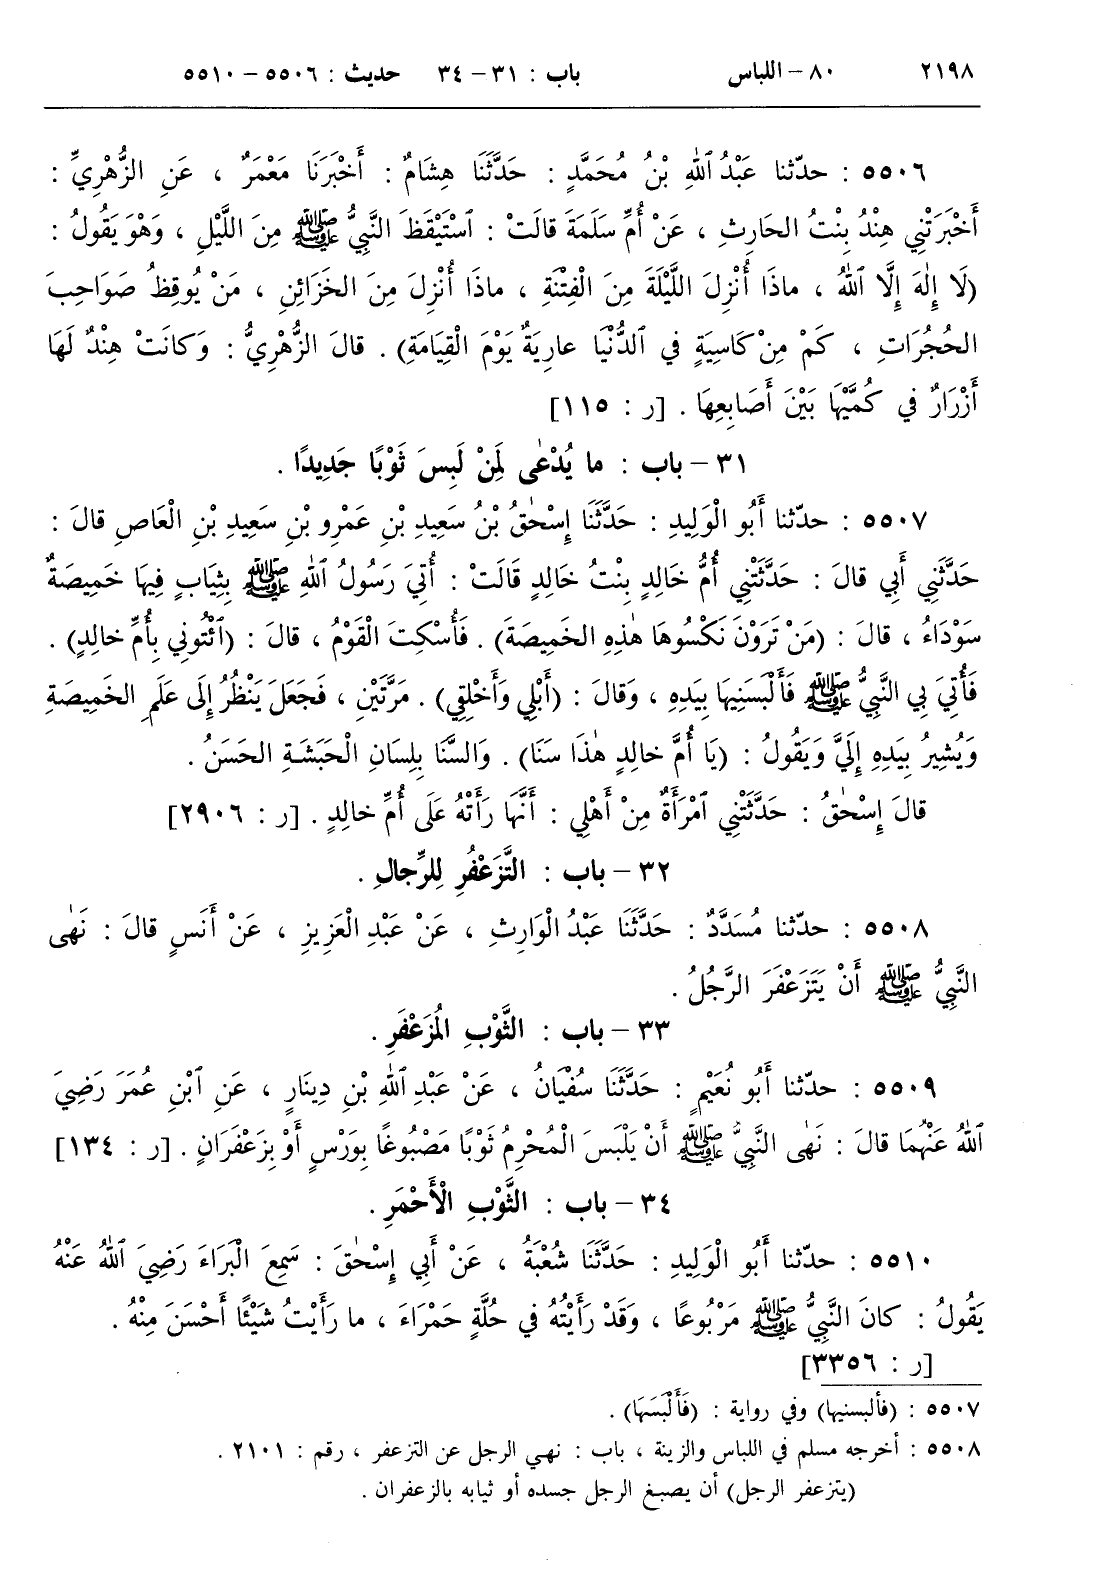 ٢١٩٨ ٨٠ – اللباس باب : ٣١ – ٣٤ حديث : ٥٥٠٦ – ٥٥١٠
٥٥٠٦ : حدّثنا عَبْدُ ٱللهِ بْنُ مُحَمَّدٍ : حَدَّثَنَا هِشَامٌ : أَخْبَرَنَا مَعْمَرٌ ، عَنِ الزُّهْرِيِّ :
أَخْبَرَتْنِي هِنْدُ بِنْتُ الحَارِثِ ، عَنْ أُمِّ سَلَمَةَ قالَتْ : ٱسْتَيْقَظَ النَّبِيُّ ﷺ مِنَ اللَّيْلِ ، وَهْوَ يَقُولُ :
(لَا إِلٰهَ إِلَّا ٱللهُ ، ماذَا أُنْزِلَ اللَّيْلَةَ مِنَ الْفِتْنَةِ ، ماذَا أُنْزِلَ مِنَ الخَزَائِنِ ، مَنْ يُوقِظُ صَوَاحِبَ
الحُجُرَاتِ ، كَمْ مِنْ كَاسِيَةٍ في ٱلدُّنْيَا عارِيَةٌ يَوْمَ الْقِيَامَةِ) . قالَ الزُّهْرِيُّ : وَكانَتْ هِنْدٌ لَهَا
أَزْرَارٌ في كُمَّيْهَا بَيْنَ أَصَابِعِهَا . [ر : ١١٥]
٣١ – باب : ما يُدْعٰى لِمَنْ لَبِسَ ثَوْبًا جَدِيدًا .
٥٥٠٧ : حدّثنا أَبُو الْوَلِيدِ : حَدَّثَنَا إِسْحٰقُ بْنُ سَعِيدِ بْنِ عَمْرِو بْنِ سَعِيدِ بْنِ الْعَاصِ قالَ :
حَدَّثَنِي أَبِي قالَ : حَدَّثَتْنِي أُمُّ خالِدٍ بِنْتُ خالِدٍ قَالَتْ : أُتِيَ رَسُولُ ٱللهِ ﷺ بِثِيَابٍ فِيهَا خَمِيصَةٌ
سَوْدَاءُ ، قالَ : (مَنْ تَرَوْنَ نَكْسُوهَا هٰذِهِ الخَمِيصَةَ) . فَأُسْكِتَ الْقَوْمُ ، قالَ : (ٱئْتُونِي بِأُمِّ خالِدٍ) .
فَأُتِيَ بِي النَّبِيُّ ﷺ فَأَلْبَسَنِيهَا بِيَدِهِ ، وَقالَ : (أَبْلِي وَأَخْلِقِي) . مَرَّتَيْنِ ، فَجَعَلَ يَنْظُرُ إِلَى عَلَمِ الخَمِيصَةِ
وَيُشِيرُ بِيَدِهِ إِلَيَّ وَيَقُولُ : (يَا أُمَّ خالِدٍ هٰذَا سَنَا) . وَالسَّنَا بِلِسَانِ الْحَبَشَةِ الحَسَنُ .
قالَ إِسْحٰقُ : حَدَّثَتْنِي ٱمْرَأَةٌ مِنْ أَهْلِي : أَنَّهَا رَأَتْهُ عَلَى أُمِّ خالِدٍ . [ر : ٢٩٠٦]
٣٢ – باب : التَّزَعْفُرِ لِلرِّجالِ .
٥٥٠٨ : حدّثنا مُسَدَّدٌ : حَدَّثَنَا عَبْدُ الْوَارِثِ ، عَنْ عَبْدِ الْعَزِيزِ ، عَنْ أَنَسٍ قالَ : نَهٰى
النَّبِيُّ ﷺ أَنْ يَتَزَعْفَرَ الرَّجُلُ .
٣٣ – باب : الثَّوْبِ المُزَعْفَرِ .
٥٥٠٩ : حدّثنا أَبُو نُعَيْمٍ : حَدَّثَنَا سُفْيَانُ ، عَنْ عَبْدِ ٱللهِ بْنِ دِينَارٍ ، عَنِ ٱبْنِ عُمَرَ رَضِيَ
ٱللهُ عَنْهُمَا قالَ : نَهٰى النَّبِيُّ ﷺ أَنْ يَلْبَسَ الْمُحْرِمُ ثَوْبًا مَصْبُوغًا بِوَرْسٍ أَوْ بِزَعْفَرَانٍ . [ر : ١٣٤]
٣٤ – باب : الثَّوْبِ الْأَحْمَرِ .
٥٥١٠ : حدّثنا أَبُو الْوَلِيدِ : حَدَّثَنَا شُعْبَةُ ، عَنْ أَبِي إِسْحٰقَ : سَمِعَ الْبَرَاءَ رَضِيَ ٱللهُ عَنْهُ
يَقُولُ : كانَ النَّبِيُّ ﷺ مَرْبُوعًا ، وَقَدْ رَأَيْتُهُ في حُلَّةٍ حَمْرَاءَ ، ما رَأَيْتُ شَيْئًا أَحْسَنَ مِنْهُ .
[ر : ٣٣٥٦]
٥٥٠٧ : (فألبسنيها) وفي رواية : (فَأَلْبَسَهَا) .
٥٥٠٨ : أخرجه مسلم في اللباس والزينة ، باب : نهي الرجل عن التزعفر ، رقم : ٢١٠١ .
(يتزعفر الرجل) أن يصبغ الرجل جسده أو ثيابه بالزعفران .